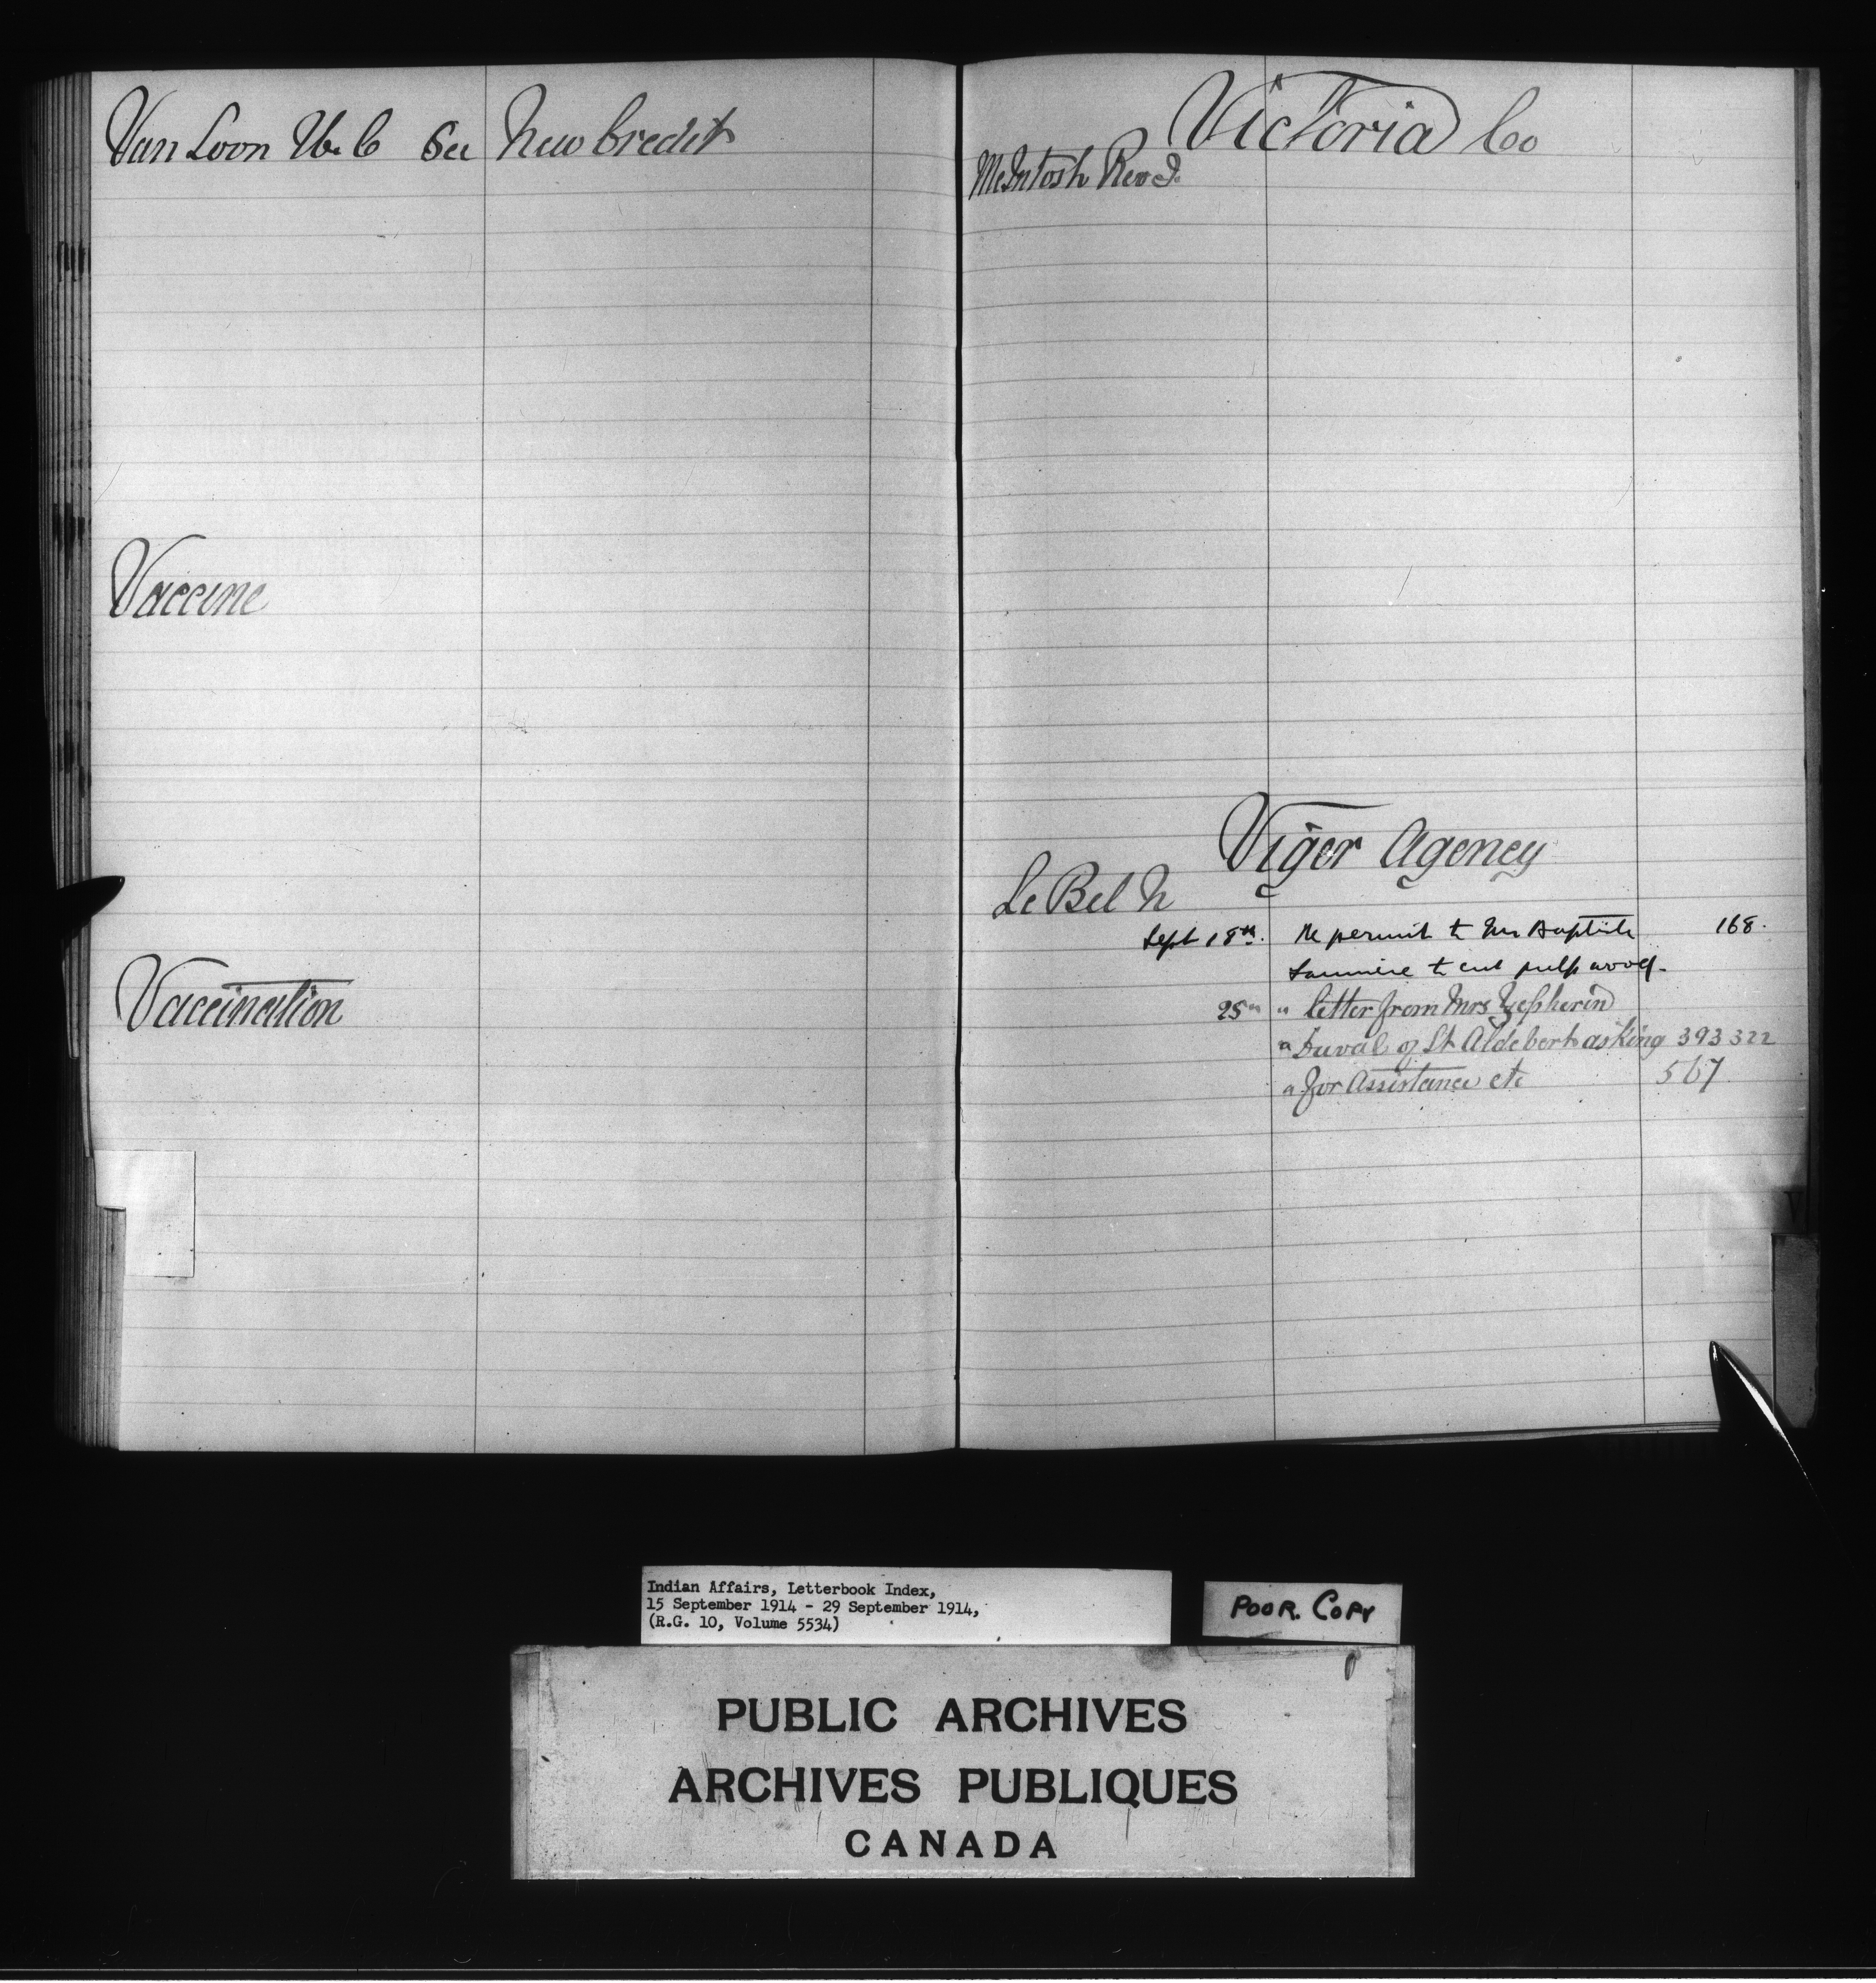 Van Loon W. C See New Credit
Vaccine
Vaccination
Victoria Co
McIntosh Rev J.
Viger Agency
Le Bel N
Sept 18th. Re permit to Mr Baptiste 168.
Launière to cut pulp wood.
25th " letter from Mrs Zepherin
" Duval of St Aldebert asking 393322
" for Assistance etc 567
V
Indian Affairs, Letterbook Index,
15 September 1914 - 29 September 1914,
(R.G. 10, Volume 5534)
POOR. COPY
PUBLIC ARCHIVES
ARCHIVES PUBLIQUES
CANADA